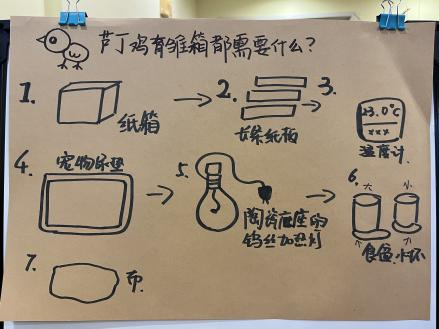 芦丁鸡育雏箱都需要什么?
1. 纸箱
2. 长条纸板
3. 23.0°C
xxx
温度计.
4. 宠物尿垫
5. 陶瓷底座的
钨丝加热灯
6. 大 小
食盆. 水杯
7. 布.